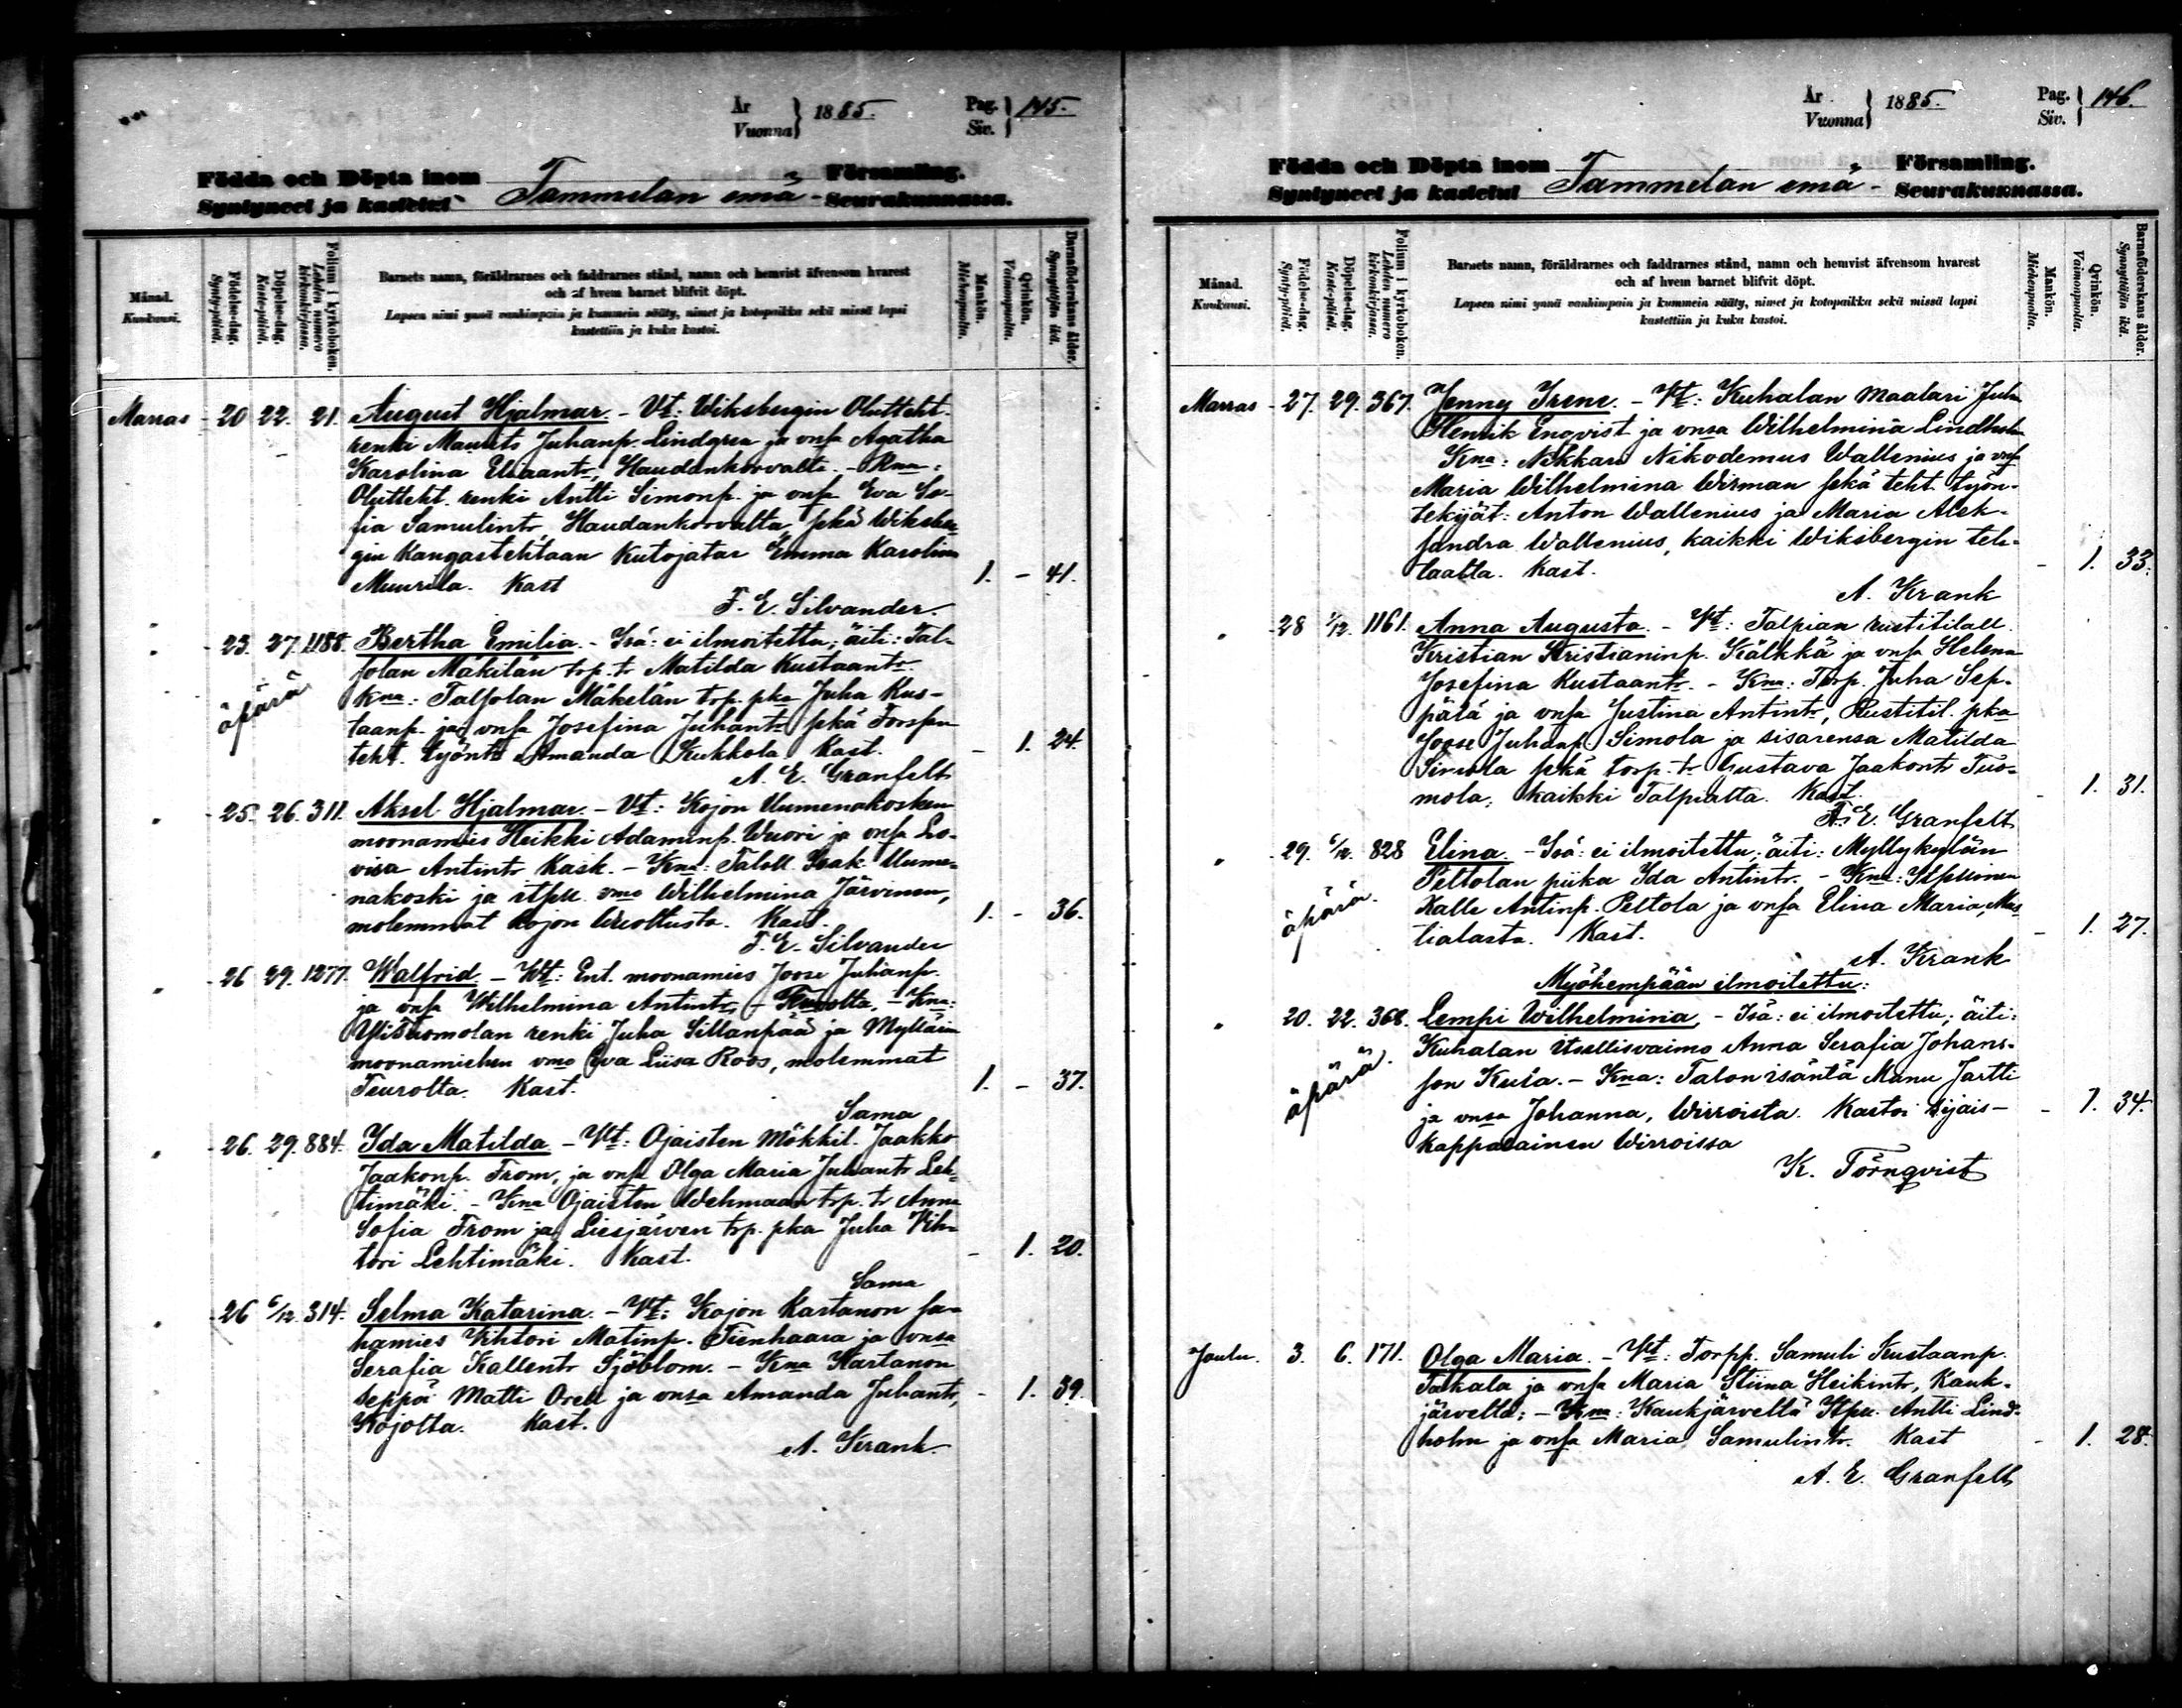 År
Vuonna } 1885. Pag.
Siv. } 145.
Födda och Döpta inom Församling.
Syntyneet ja kastetut Tammelan emä- Seurakunnassa.
Månad.
Kuukausi.
Födelse-dag.
Synty-päivä.
Döpelse-dag.
Kaste-päivä.
Folium i kyrkoboken.
Lehden numero kirkonkirjassa.
Barnets namn, föräldrarnes och faddrarnes stånd, namn och hemvist äfvensom hvarest
och af hvem barnet blifvit döpt.
Lapsen nimi ynnä vanhimpain ja kummein sääty, nimet ja kotopaikka sekä missä lapsi
kastettiin ja kuka kastoi.
Mankön.
Miehenpuolta.
Qvinkön.
Vaimonpuolta.
Barnaföderskans ålder.
Synnyttäjän ikä.
Marras - 20 22. 21. August Hjalmar. - Vt: Wiksbergin Olutteht.
renki Maurits Juhanp. Lindgren ja vnsa Agatha
Karolina Eliaantr, Haudankorvalta. - Kna:
Olutteht. renki Antti Simonp. ja vnsa Eva So-
fia Samulintr Haudankorvalta sekä Wiksber-
gin Kangastehtaan Kutojatar Emma Karolina
Muurila. Kast 1. - 41.
F. E. Silvander.
" - 23. 27. 1188. Bertha Emilia. - Isä: ei ilmoitettu; äiti: Tal-
solan Mäkilän trp. tr Matilda Kustaantr.
äpärä Kna: Talsolan Mäkelän trp. pka Juha Kus-
taanp. ja vnsa Josefina Juhantr sekä Forssan
teht. työntr Amanda Kukkola Kast. - 1. 24.
A. E. Granfelt
" - 25. 26. 311. Aksel Hjalmar. - Vt: Kojon Uumenakosken
moonamies Heikki Adaminp. Wuori ja vnsa Lo-
visa Antintr Kask. - Kna: Taloll. Isak Uume-
nakoski ja itsell. vmo Wilhelmina Järvinen,
molemmat Kojon Wuoltusta. Kast. 1. - 36.
F. E. Silvander
" - 26 29. 1277. Walfrid. - Vt: Ent. moonamies Joose Juhanp.
ja vnsa Wilhelmina Antintr - Teurolta. - Kna:
Ylistuomolan renki Juha Sillanpää ja Myllärin
moonamiehen vmo Eva Liisa Roos, molemmat
Teurolta. Kast. 1. - 37.
Sama
" - 26. 29. 884. Ida Matilda - Vt: Ojaisten mökkil. Jaakko
Jaakonp. From, ja vnsa Olga Maria Juhantr Leh-
timäki. - Kna Ojaisten Wehmaan trp. tr Anna
Sofia From ja Liesjärven trp. pka Juha Vih-
tori Lehtimäki. Kast. - 1. 20.
Sama
" - 26 6/12. 314. Selma Katarina. - Vt: Kojon Kartanon sa-
hamies Vihtori Matinp. Tienhaara ja vnsa
Serafia Kallentr Sjöblom. - Kna Kartanon
seppä Matti Orell ja vnsa Amanda Juhantr, - 1. 39.
Kojolta. Kast.
A. Krank.
År
Vuonna } 1885. Pag.
Siv. } 146.
Födda och Döpta inom Församling.
Syntyneet ja kastetut Tammelan emä- Seurakunnassa.
Månad.
Kuukausi.
Födelse-dag.
Synty-päivä.
Döpelse-dag.
Kaste-päivä.
Folium i kyrkoboken.
Lehden numero kirkonkirjassa.
Barnets namn, föräldrarnes och faddrarnes stånd, namn och hemvist äfvensom hvarest
och af hvem barnet blifvit döpt.
Lapsen nimi ynnä vanhimpain ja kummein sääty, nimet ja kotopaikka sekä missä lapsi
kastettiin ja kuka kastoi.
Mankön.
Miehenpuolta.
Qvinkön.
Vaimonpuolta.
Barnaföderskans ålder.
Synnyttäjän ikä.
Marras - 27. 29. 367. Jenny Irene. - Vt: Kuhalan maalari Juha
Henrik Enqvist ja vnsa Wilhelmina Lindholm
Kna: Nikkari Nikodemus Wallenius ja vnsa
Maria Wilhelmina Wirman sekä teht. työn-
tekijät: Anton Wallenius ja Maria Alek-
sandra Wallenius, kaikki Wiksbergin teh-
taalta. Kast. - 1. 33.
A. Krank
" - 28 1/12. 1161. Anna Augusta. - Vt: Talpian rustitilall.
Kristian Kristianinp. Kälkkä ja vnsa Helena
Josefina Kustaantr. - Kna: Torp. Juha Sep-
pälä ja vnsa Justina Antintr, Rustitil. pka
Joose Juhanp. Simola ja sisarensa Matilda
Simola sekä torp. tr Gustava Jaakontr Tuo-
mola, kaikki Talpialta. Kast. - 1. 31.
A. E. Granfelt
" - 29. 6/12. 828 Elina. - Isä: ei ilmoitettu; äiti: Myllykylän
Peltolan piika Ida Antintr. - Kna: Itsellinen
äpärä. Kalle Antinp. Peltola ja vnsa Elina Maria, Mus-
tialasta. Kast. - 1. 27.
A. Krank
Myöhempään ilmoitettu:
" 20. 22. 368. Lempi Wilhelmina. - Isä: ei ilmoitettu; äiti:
Kuhalan itsellisvaimo Anna Serafia Johans-
äpärä. son Kuha. - Kna: Talon isäntä Manu Jartti
ja vnsa Johanna, Wirroista. Kastoi sijais- - 1. 34.
kappalainen Wirroissa
K. Törnqvist
Joulu. 3. 6. 171. Olga Maria. - Vt: Torpp. Samuli Kustaanp.
Talkala ja vnsa Maria Stiina Heikintr, Kauk-
järveltä; - Kna: Kaukjärveltä Itsell. Antti Lind-
holm ja vnsa Maria Samulintr. Kast - 1. 28.
A. E. Granfelt